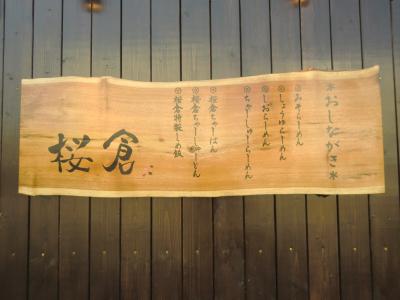 ※おしながき※
◎みそらーめん
◎しょうゆらーめん
◎しおらーめん
◎ちゃーしゅーらーめん
◎桜倉ちゃーはん
◎桜倉ちゃーしゅーどん
◎桜倉特製しめ飯
桜倉